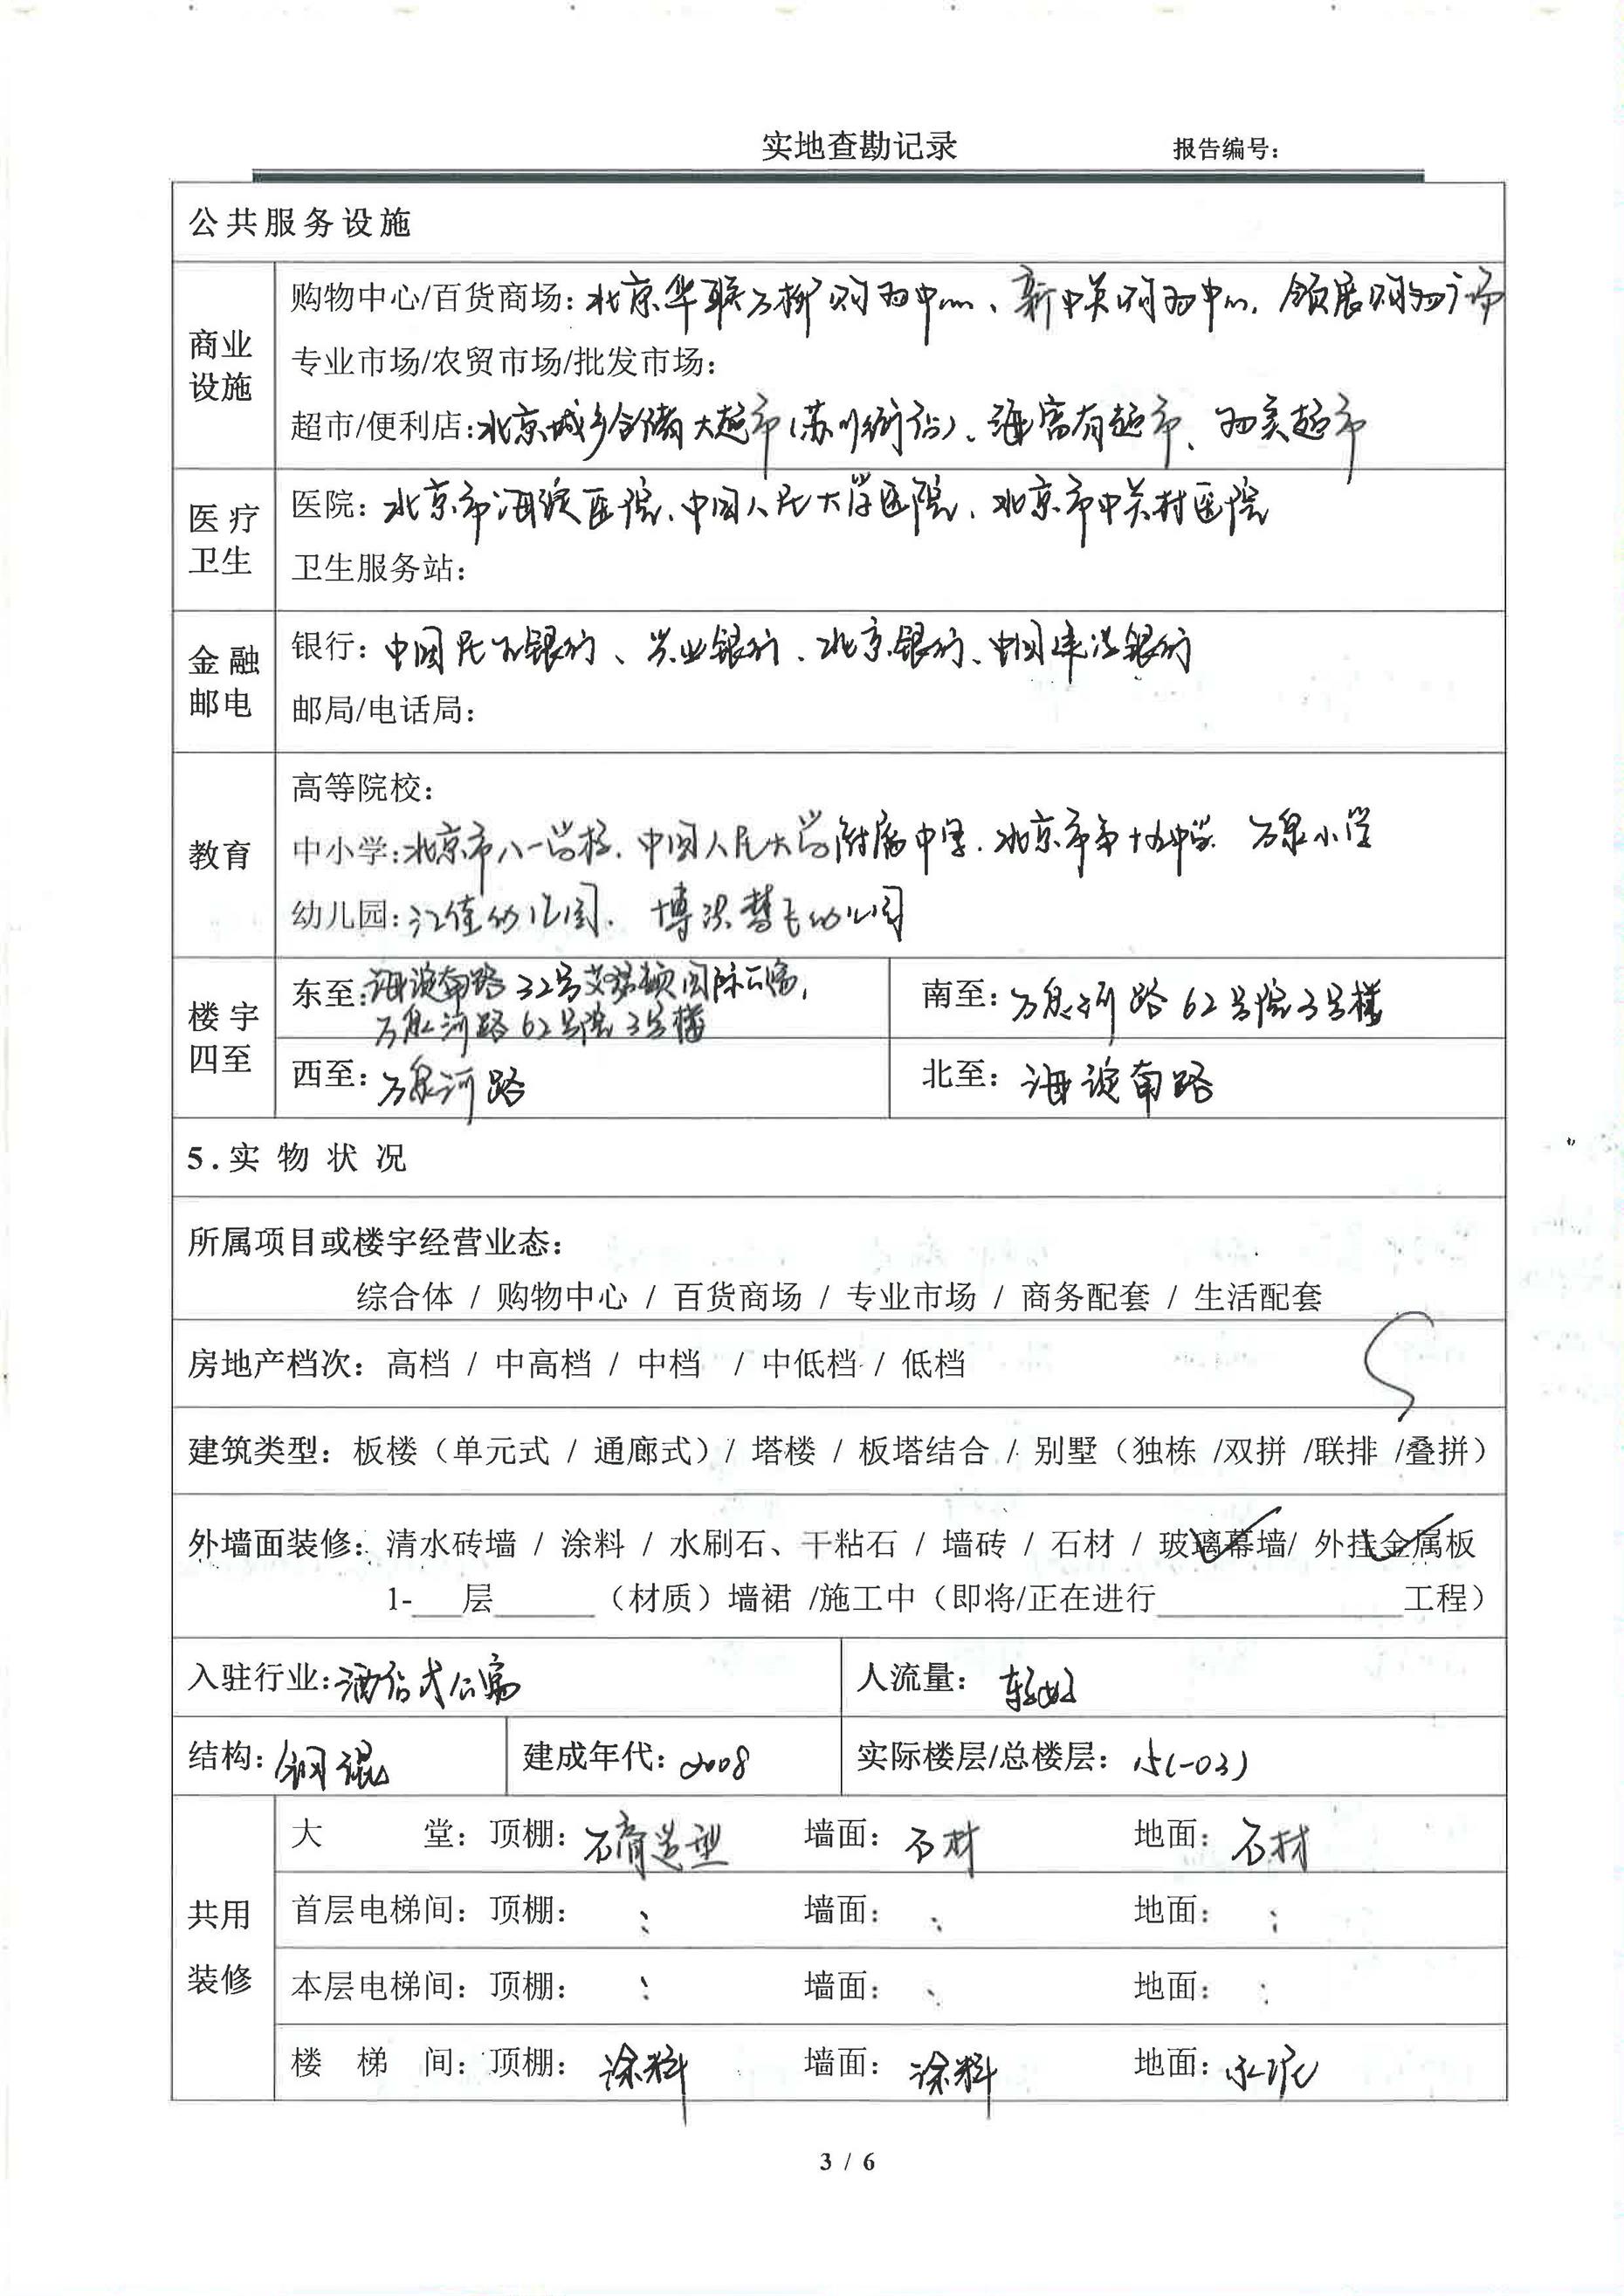 实地查勘记录 报告编号：
公共服务设施
商业设施
购物中心/百货商场：北京华联万柳购物中心、新中关购物中心、领展购物广场
专业市场/农贸市场/批发市场：
超市/便利店：北京城乡仓储大超市（苏州街店）、海富有超市、物美超市
医疗卫生
医院：北京市海淀医院、中国人民大学医院、北京市中关村医院
卫生服务站：
金融邮电
银行：中国民生银行、兴业银行、北京银行、中国建设银行
邮局/电话局：
教育
高等院校：
中小学：北京市八一学校、中国人民大学附属中学、北京市第十九中学 万泉小学
幼儿园：汇佳幼儿园、博洪慧飞幼儿园
楼宇四至
东至：海淀南路32号艾瑟顿国际公寓，
万泉河路62号院3号楼
南至：万泉河路62号院3号楼
西至：万泉河路
北至：海淀南路
5.实物状况
所属项目或楼宇经营业态：
综合体 / 购物中心 / 百货商场 / 专业市场 / 商务配套 / 生活配套
房地产档次：高档 / 中高档 / 中档 / 中低档 / 低档
建筑类型：板楼（单元式 / 通廊式）/ 塔楼 / 板塔结合 / 别墅（独栋 /双拼 /联排 /叠拼）
外墙面装修：清水砖墙 / 涂料 / 水刷石、干粘石 / 墙砖 / 石材 / 玻璃幕墙/ 外挂金属板
1-___层______（材质）墙裙 /施工中（即将/正在进行_______________工程）
入驻行业：酒店式公寓 人流量：较好
结构：钢混 建成年代：2008 实际楼层/总楼层：15(-03)
共用装修
大堂：顶棚：石膏造型 墙面：石材 地面：石材
首层电梯间：顶棚： 墙面： 地面：
本层电梯间：顶棚： 墙面： 地面：
楼梯间：顶棚：涂料 墙面：涂料 地面：水泥
3 / 6